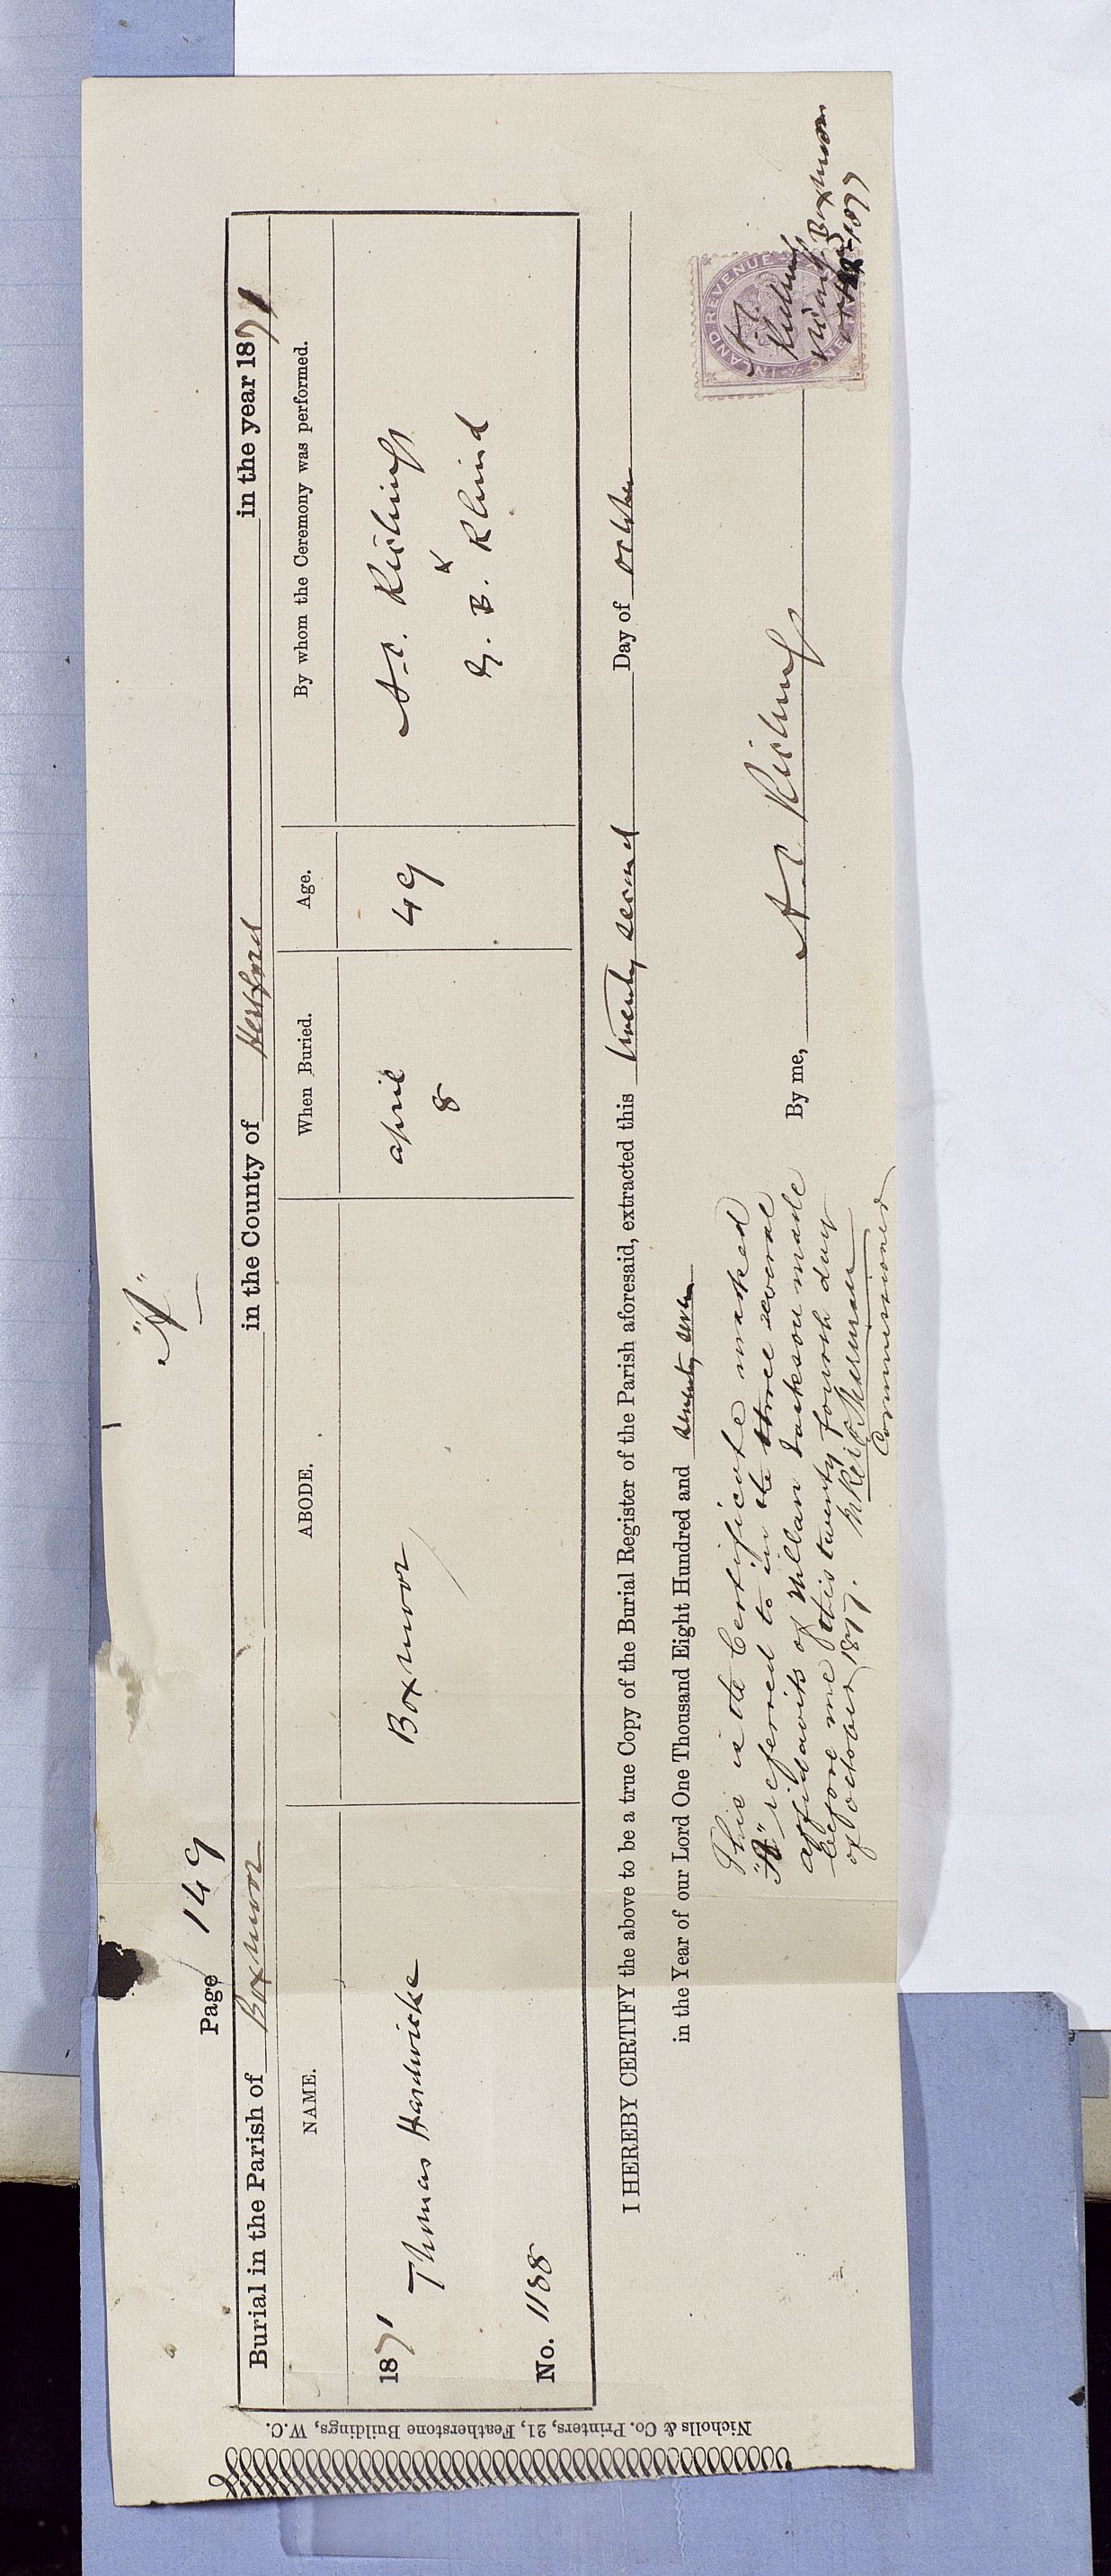 "A"
Page 149
Burial in the Parish of Boxmoor in the County of Hertford in the year 1871
NAME. ABODE. When Buried. Age. By whom the Ceremony was performed.
1871 Thomas Hardwicke Boxmoor April 8 49 A. C. Richings
& B. Rhind
No. 1188
I HEREBY CERTIFY the above to be a true Copy of the Burial Register of the Parish aforesaid, extracted this twenty second Day of October
in the Year of our Lord One Thousand Eight Hundred and seventy seven
By me, A C Richings
This is the Certificate marked
"A" referred to in the three several
affidavits of William Jackson made
before me this twenty fourth day
of October 1877.
Commissioner
INLAND REVENUE
A. C.
Richings
Boxmoor
1877
Nicholls & Co. Printers, 21, Featherstone Buildings, W.C.